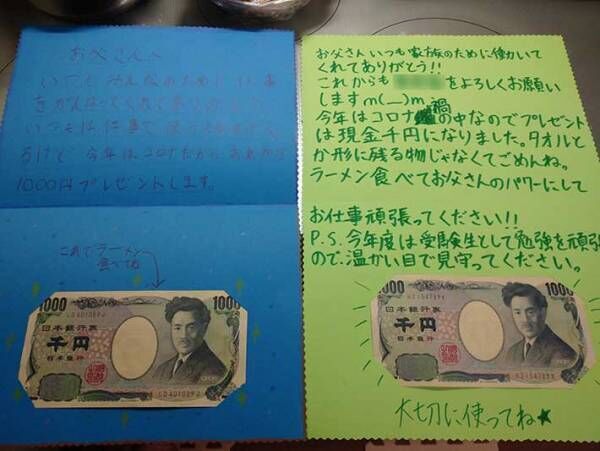 お父さんへ
いつもみんなのために仕事
をがんばってくれてありがとう。
いつもは
けど、今年はコロナだから
1000円プレゼントします。
これでラーメン
食べてね
1000
日本銀行券
千円
日本銀行
1000
お父さんいつも家族のために働いて
くれてありがとう!!
これからも をよろしくお願い
しますm(__)m
今年はコロナ禍の中なのでプレゼント
は現金千円になりました。タオルと
か形に残る物じゃなくてごめんね。
ラーメン食べてお父さんのパワーにして
お仕事頑張ってください!!
P.S.今年度は受験生として勉強を頑張
ので温かい目で見守ってください。
1000
日本銀行券
千円
日本銀行
1000
大切に使ってね★